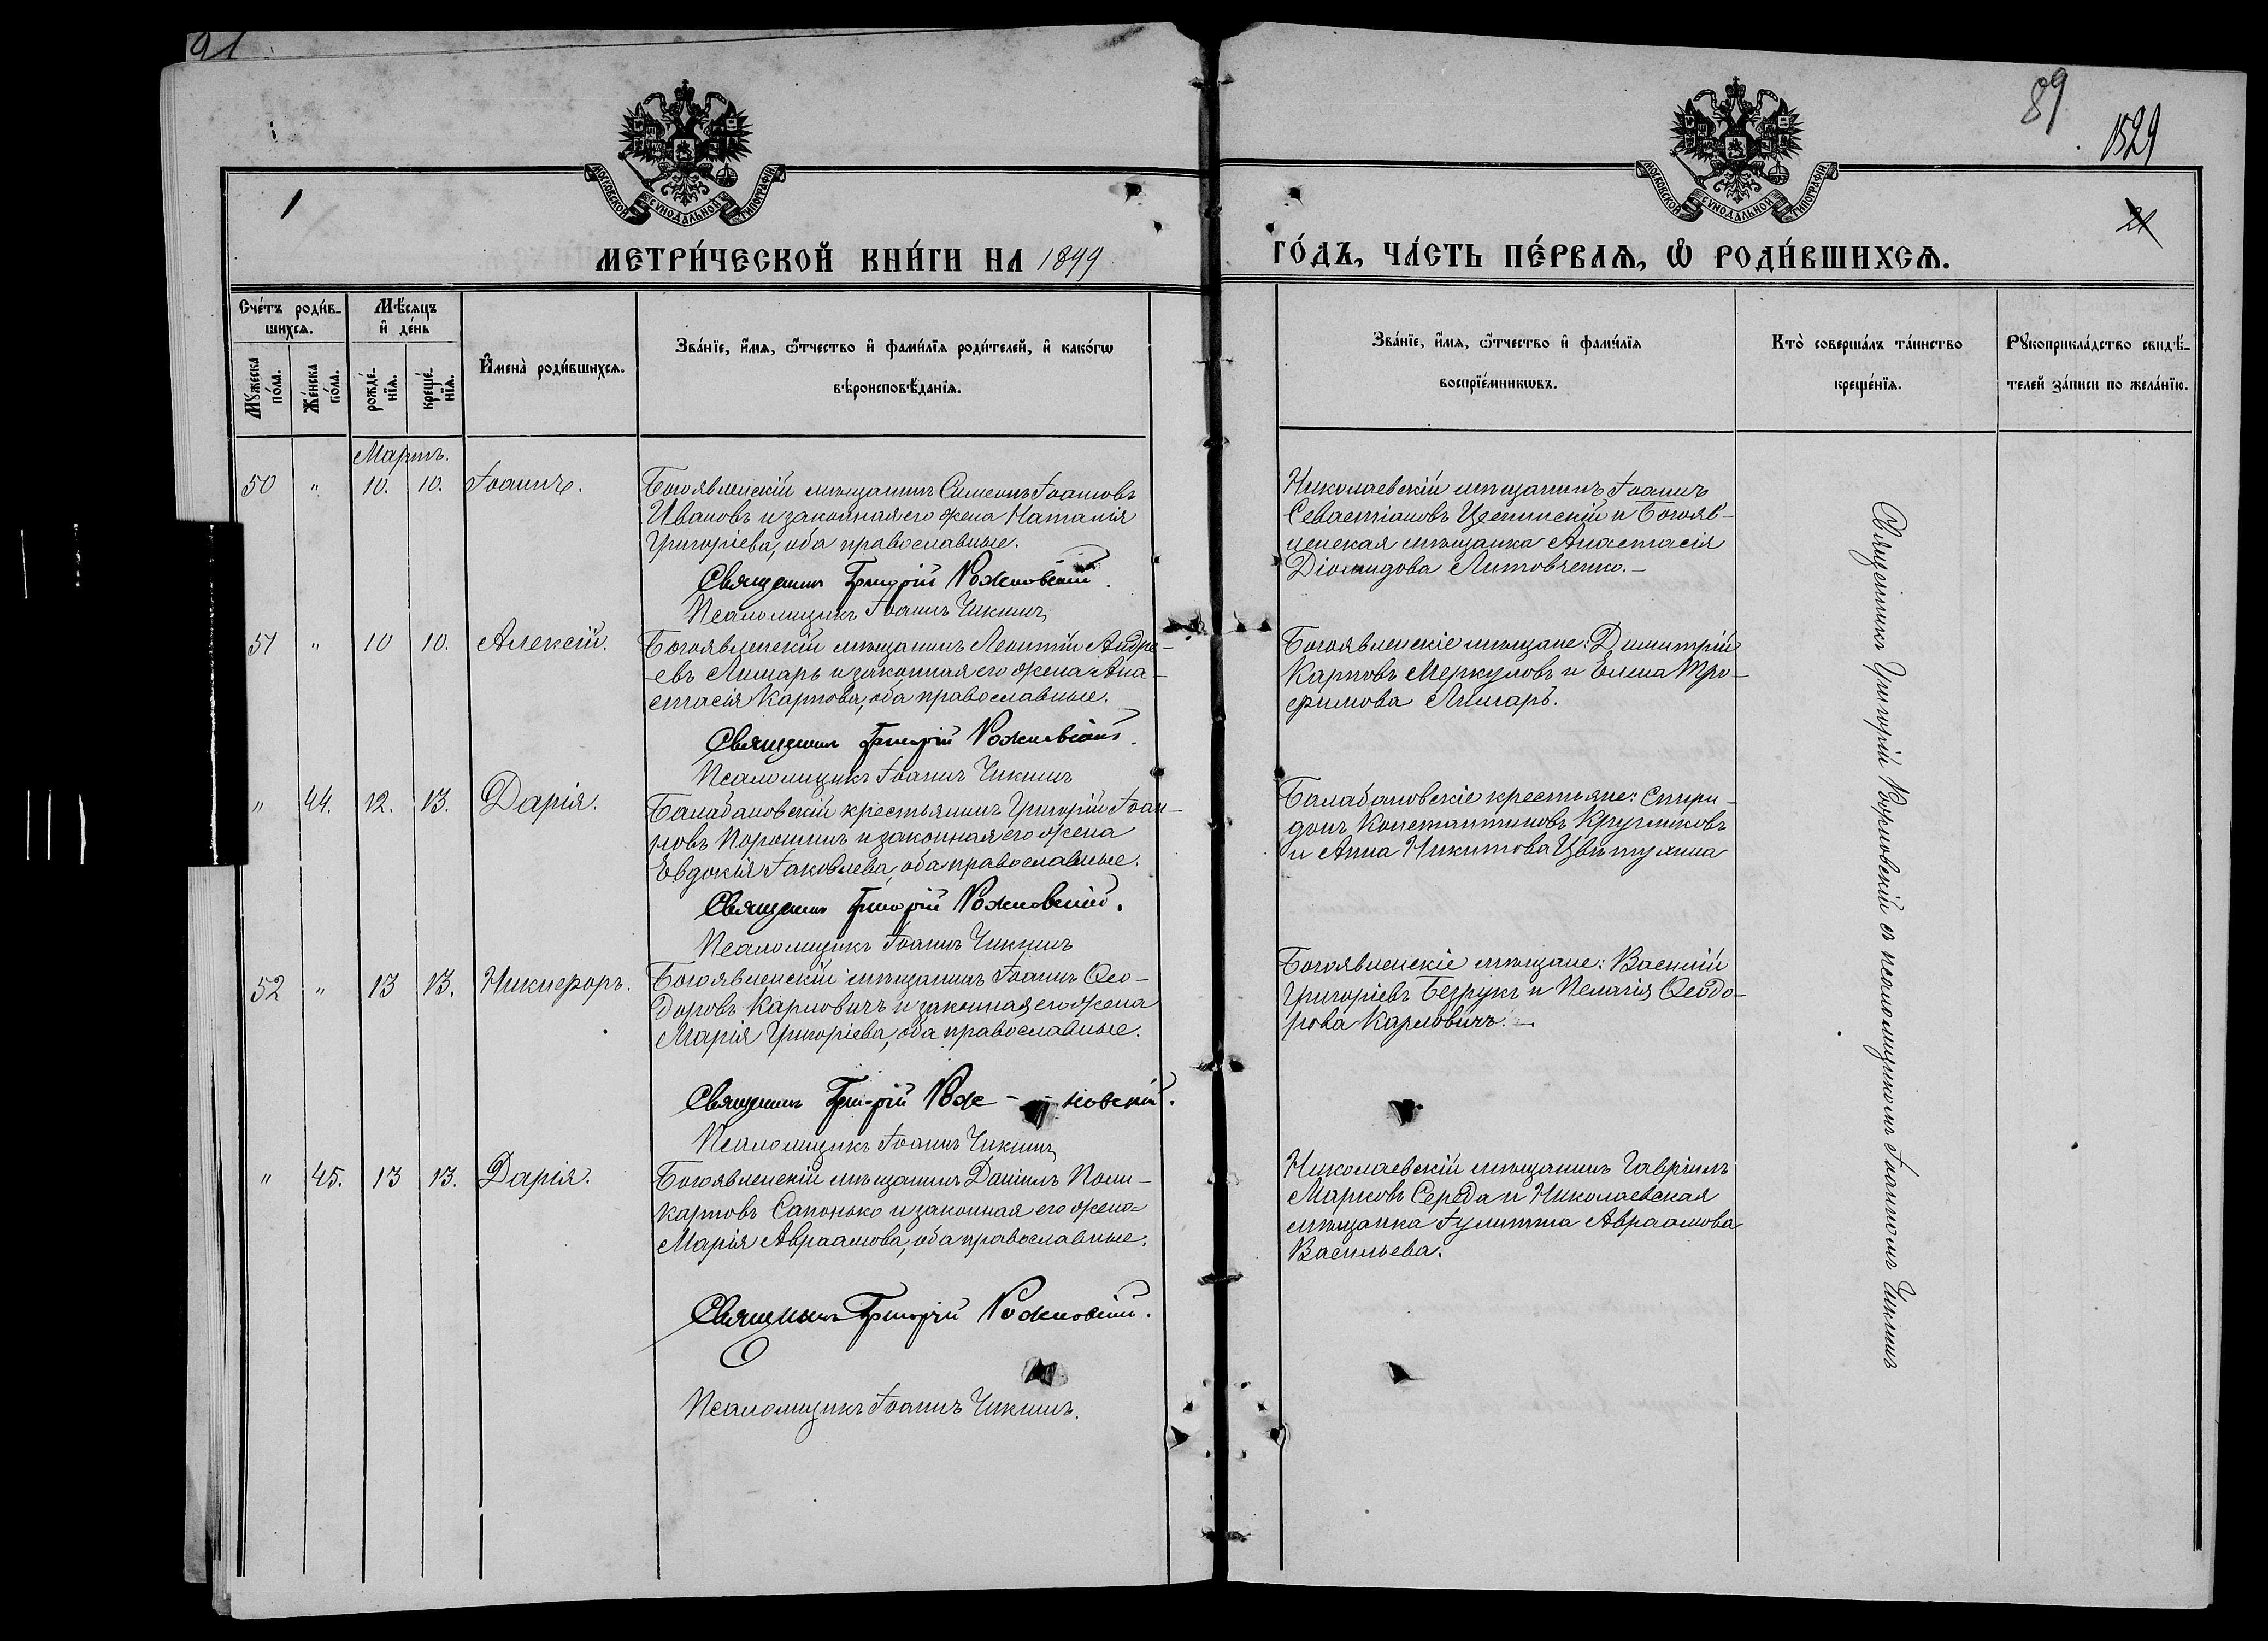 91
89
1529
21
1
МОСКОВСКОЙ СѴНОДАЛЬНОЙ ТИПОГРАФІИ
МОСКОВСКОЙ СѴНОДАЛЬНОЙ ТИПОГРАФІИ
МЕТРИ́ЧЕСКОЙ КНИ́ГИ НА 1899 ГО́ДЪ, ЧА́СТЬ ПЕ́РВАѦ, Ѿ РОДИ́ВШИХСѦ.
Сче́тъ роди́в-
шихсѧ.
Мꙋжеска по́ла.
Же́нска по́ла.
Мѣ́сѧцъ
и҆ де́нь
рожде́-
нїѧ.
креще́-
нїѧ.
И҆мена̀ роди́вшихсѧ.
Зва́нїе, и҆́мѧ, ѻ҆́тчество и҆ фамилїѧ роди́телей, и҆ како́гѡ
вѣроисповѣ́данїѧ.
Зва́нїе, и҆́мѧ, ѻ҆́тчество и҆ фами́лїѧ
воспрїе́мникѡвъ.
Кто̀ соверша́лъ та́инство
креще́нїѧ.
Рꙋкоприкла́дство свидѣ́-
телей за́писи по жела́нїю.
Мартъ.
50 " 10. 10. Іоаннъ.
Богоявленскій мѣщанинъ Симеонъ Іоанновъ
Ивановъ и законная его жена Наталія
Григоріева, оба православные.
Священникъ Григорій Рожновскій.
Псаломщикъ Іоаннъ Чикминъ
Николаевскій мѣщанинъ Іоаннъ
Севастіановъ и Богояв-
ленская мѣщанка Анастасія
Діомидова Литовченко.-
51 " 10 10. Алексій.
Богоявленскій мѣщанинъ Леонтій Андре-
-евъ Лимарь и законная его жена Ана-
стасія Карпова, оба православные.
Священникъ Григорій Рожновскій.
Псаломщикъ Іоаннъ Чикминъ
Богоявленскіе мѣщане: Димитрій
Карповъ Меркуловъ и Елена Тро-
фимова Лимарь.
" 44. 12. 13. Дарія.
Балабановскій крестьянинъ Григорій Іоан-
новъ Порошинъ и законная его жена
Евдокія Іаковлева, оба православные.
Священникъ Григорій Рожновскій.
Псаломщикъ Іоаннъ Чикминъ
Балабановскіе крестьяне: Спири-
донъ Константиновъ Кругликовъ
и Анна Никитова Цвѣтухина
52 " 13 13. Никифоръ.
Богоявленскій мѣщанинъ Іоаннъ Ѳео-
доровъ Карповичъ и законная его жена
Марія Григоріева, оба православные.
Священникъ Григорій Рож--новскій.
Псаломщикъ Іоаннъ Чикминъ
Богоявленскіе мѣщане: Василій
Григоріевъ Безрукъ и Пелагія Ѳеодо-
рова Карповичъ.-
" 45. 13 13. Дарія.
Богоявленскій мѣщанинъ Даніилъ Поли-
карповъ Сапонько и законная его жена
Марія Авраамова, оба православные.
Священникъ Григорій Рожновскій.
Псаломщикъ Іоаннъ Чикминъ.
Николаевскій мѣщанинъ Гавріилъ
Марковъ Середа и Николаевская
мѣщанка Іулитта Авраамова
Васильева.
Священникъ Григорій Рожновскій съ псаломщикомъ Іоанномъ Чикминъ